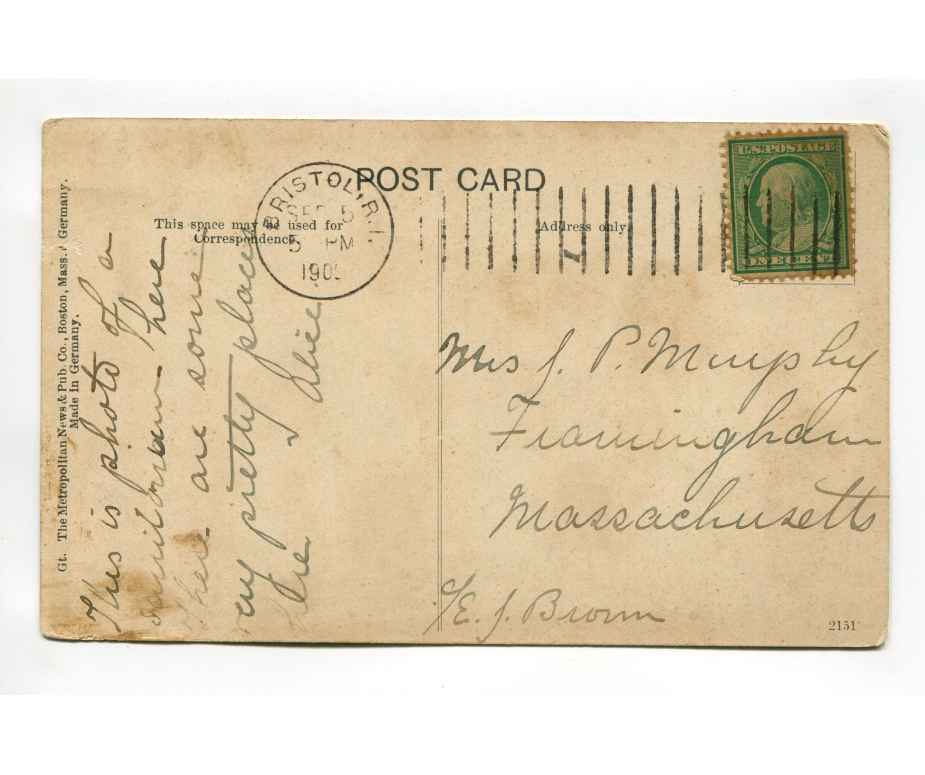 POST CARD
This space may be used for
Correspondence
Address only
BRISTOL, R.I.
SEP 5
5 PM
190
U.S. POSTAGE
ONE CENT
Gt. The Metropolitan News & Pub. Co., Boston, Mass. Germany.
Made in Germany.
This is photo of a
here
there are some
very pretty places
here
Mrs J. P. Murphy
Framingham
Massachusetts
E. J. Brown
2151